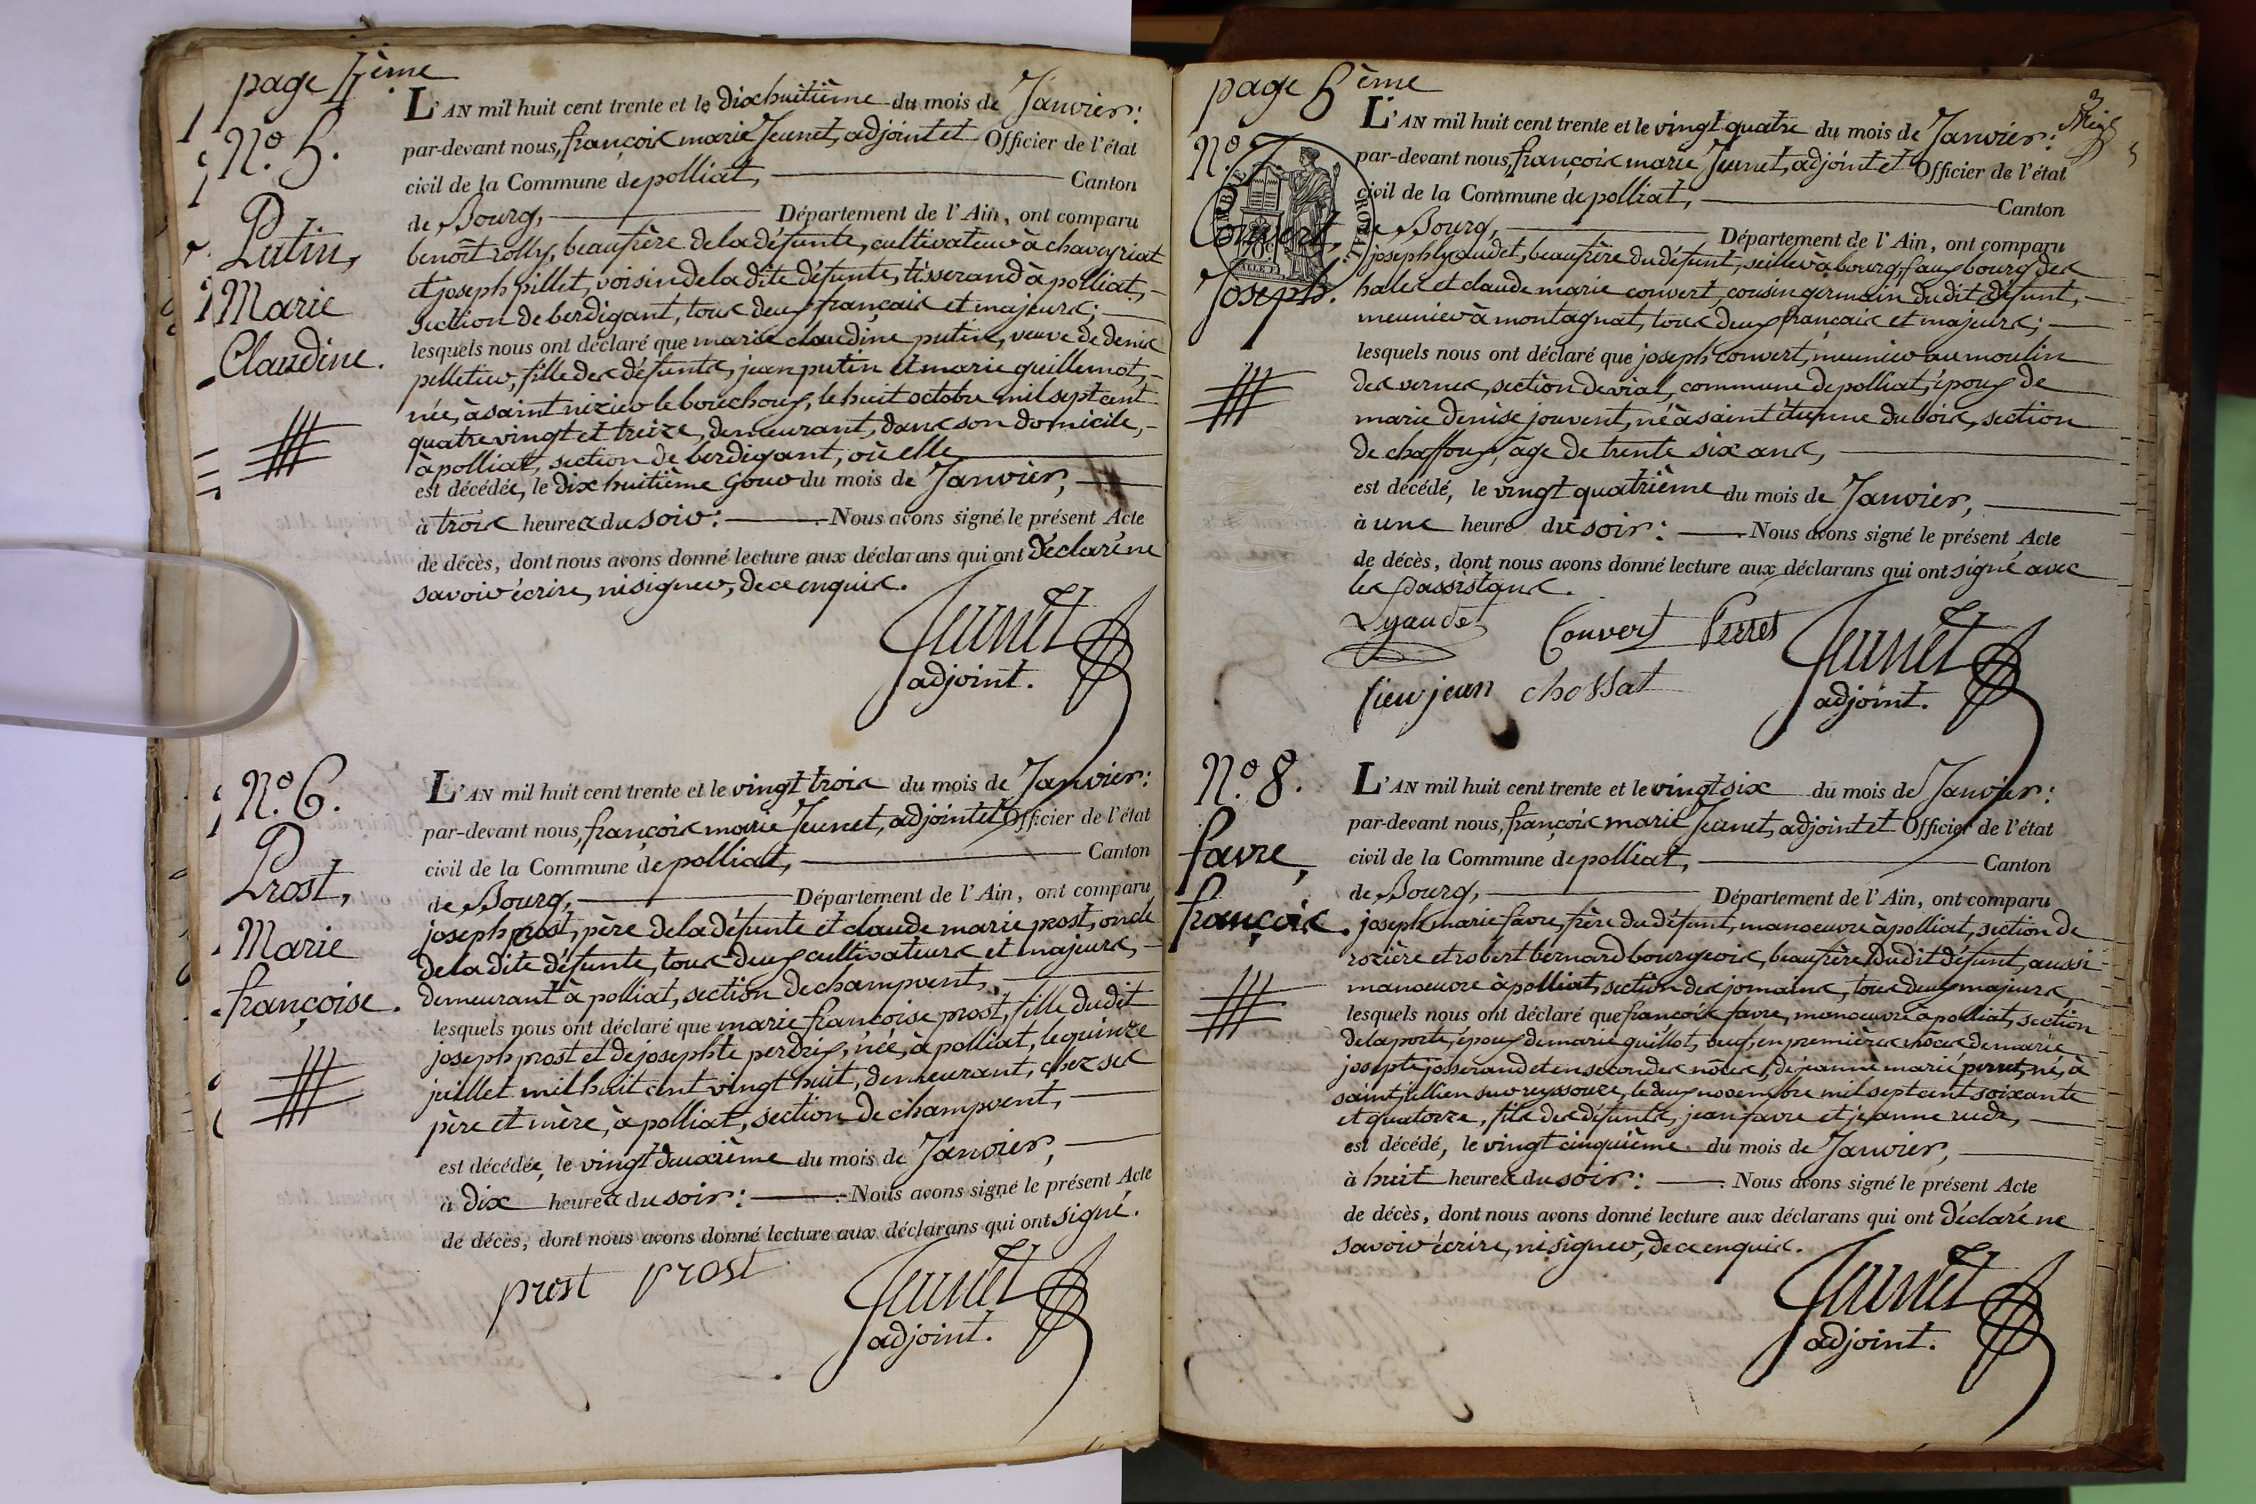 page 4ème
N.o 5.
Putin,
Marie
Claudine.
L'AN mil huit cent trente et le dix huitième du mois de Janvier:
par-devant nous, françois marie Jeunet, adjoint et Officier de l'état
civil de la Commune de polliat, Canton
de Bourg, Département de l'Ain, ont comparu
benoît rolly, beaufrère de la défunte, cultivateur à chaveyriat
et joseph pillet, voisin de la dite défunte, tisserand à polliat,
section de berdigant, tous deux français et majeurs;
lesquels nous ont déclaré que marie claudine putin, veuve de denis
pelletier, fille des défunts, jean putin et marie guillemot,
née, à saint nizier le bouchoux, le huit octobre mil sept cent
quatre vingt et treize, demeurant, dans son domicile,
à polliat, section de berdigant, où elle
est décédée, le dix huitième jour du mois de Janvier,
à trois heures du soir: Nous avons signé le présent Acte
de décès, dont nous avons donné lecture aux déclarans qui ont déclaré ne
savoir écrire, ni signer, de ce enquis.
Jeunet
adjoint.
N.o 6.
Prost,
Marie
françoise.
L'AN mil huit cent trente et le vingt trois du mois de Janvier:
par-devant nous, françois marie Jeunet, adjoint et Officier de l'état
civil de la Commune de polliat, Canton
de Bourg, Département de l'Ain, ont comparu
joseph prost, père de la défunte et claude marie prost, oncle
de la dite défunte, tous deux cultivateurs et majeurs,
demeurant à polliat, section de champvent,
lesquels nous ont déclaré que marie françoise prost, fille dudit
joseph prost et de josephte perdrix, née, à polliat, le quinze
juillet mil huit cent vingt huit, demeurant, chez ses
père et mère, à polliat, section de champvent,
est décédée, le vingt deuxième du mois de Janvier,
à dix heures du soir: Nous avons signé le présent Acte
de décès, dont nous avons donné lecture aux déclarans qui ont signé.
prost prost
Jeunet
adjoint.
page 5ème
N.o
Convert,
Joseph.
L'AN mil huit cent trente et le vingt quatre du mois de Janvier:
par-devant nous, françois marie Jeunet, adjoint et Officier de l'état
civil de la Commune de polliat, Canton
de Bourg, Département de l'Ain, ont comparu
joseph lyaudet, beaufrère du défunt, seillier à bourg, faux bourg des
hales et claude marie convert, cousin germain dudit défunt,
meunier à montagnat, tous deux français et majeurs;
lesquels nous ont déclaré que joseph convert, meunier au moulin
des vernes, section de vial, commune de polliat, époux de
marie denise jouvent, né à saint étienne du bois, section
de chaffoux, âge de trente six ans,
est décédé, le vingt quatrième du mois de Janvier,
à une heure du soir: Nous avons signé le présent Acte
de décès, dont nous avons donné lecture aux déclarans qui ont signé avec
les assistans.
Lyaudet Convert Perret Jeunet
sieu jean chossat adjoint.
N.o 8.
favre,
françois.
L'AN mil huit cent trente et le vingt six du mois de Janvier:
par-devant nous, françois marie Jeunet, adjoint et Officier de l'état
civil de la Commune de polliat, Canton
de Bourg, Département de l'Ain, ont comparu
joseph marie favre, frère du défunt, manoeuvre à polliat, section de
rozière et robert bernard bourgeois, beaufrère dudit défunt, aussi
manoeuvre à polliat, section des jomains, tous deux majeurs,
lesquels nous ont déclaré que françois favre, manoeuvre à polliat, section
de la porte, époux de marie guillot, veuf, en premières nôces, de marie
josepte josserand et en secondes nôces, de jeanne marie perret, né, à
saint jullien sur reyssouze, le deux novembre mil sept cent soixante
et quatorze, fils des défunts, jean favre et jeanne rude,
est décédé, le vingt cinquième du mois de Janvier,
à huit heures du soir: Nous avons signé le présent Acte
de décès, dont nous avons donné lecture aux déclarans qui ont déclaré ne
savoir écrire, ni signer, de ce enquis.
Jeunet
adjoint.